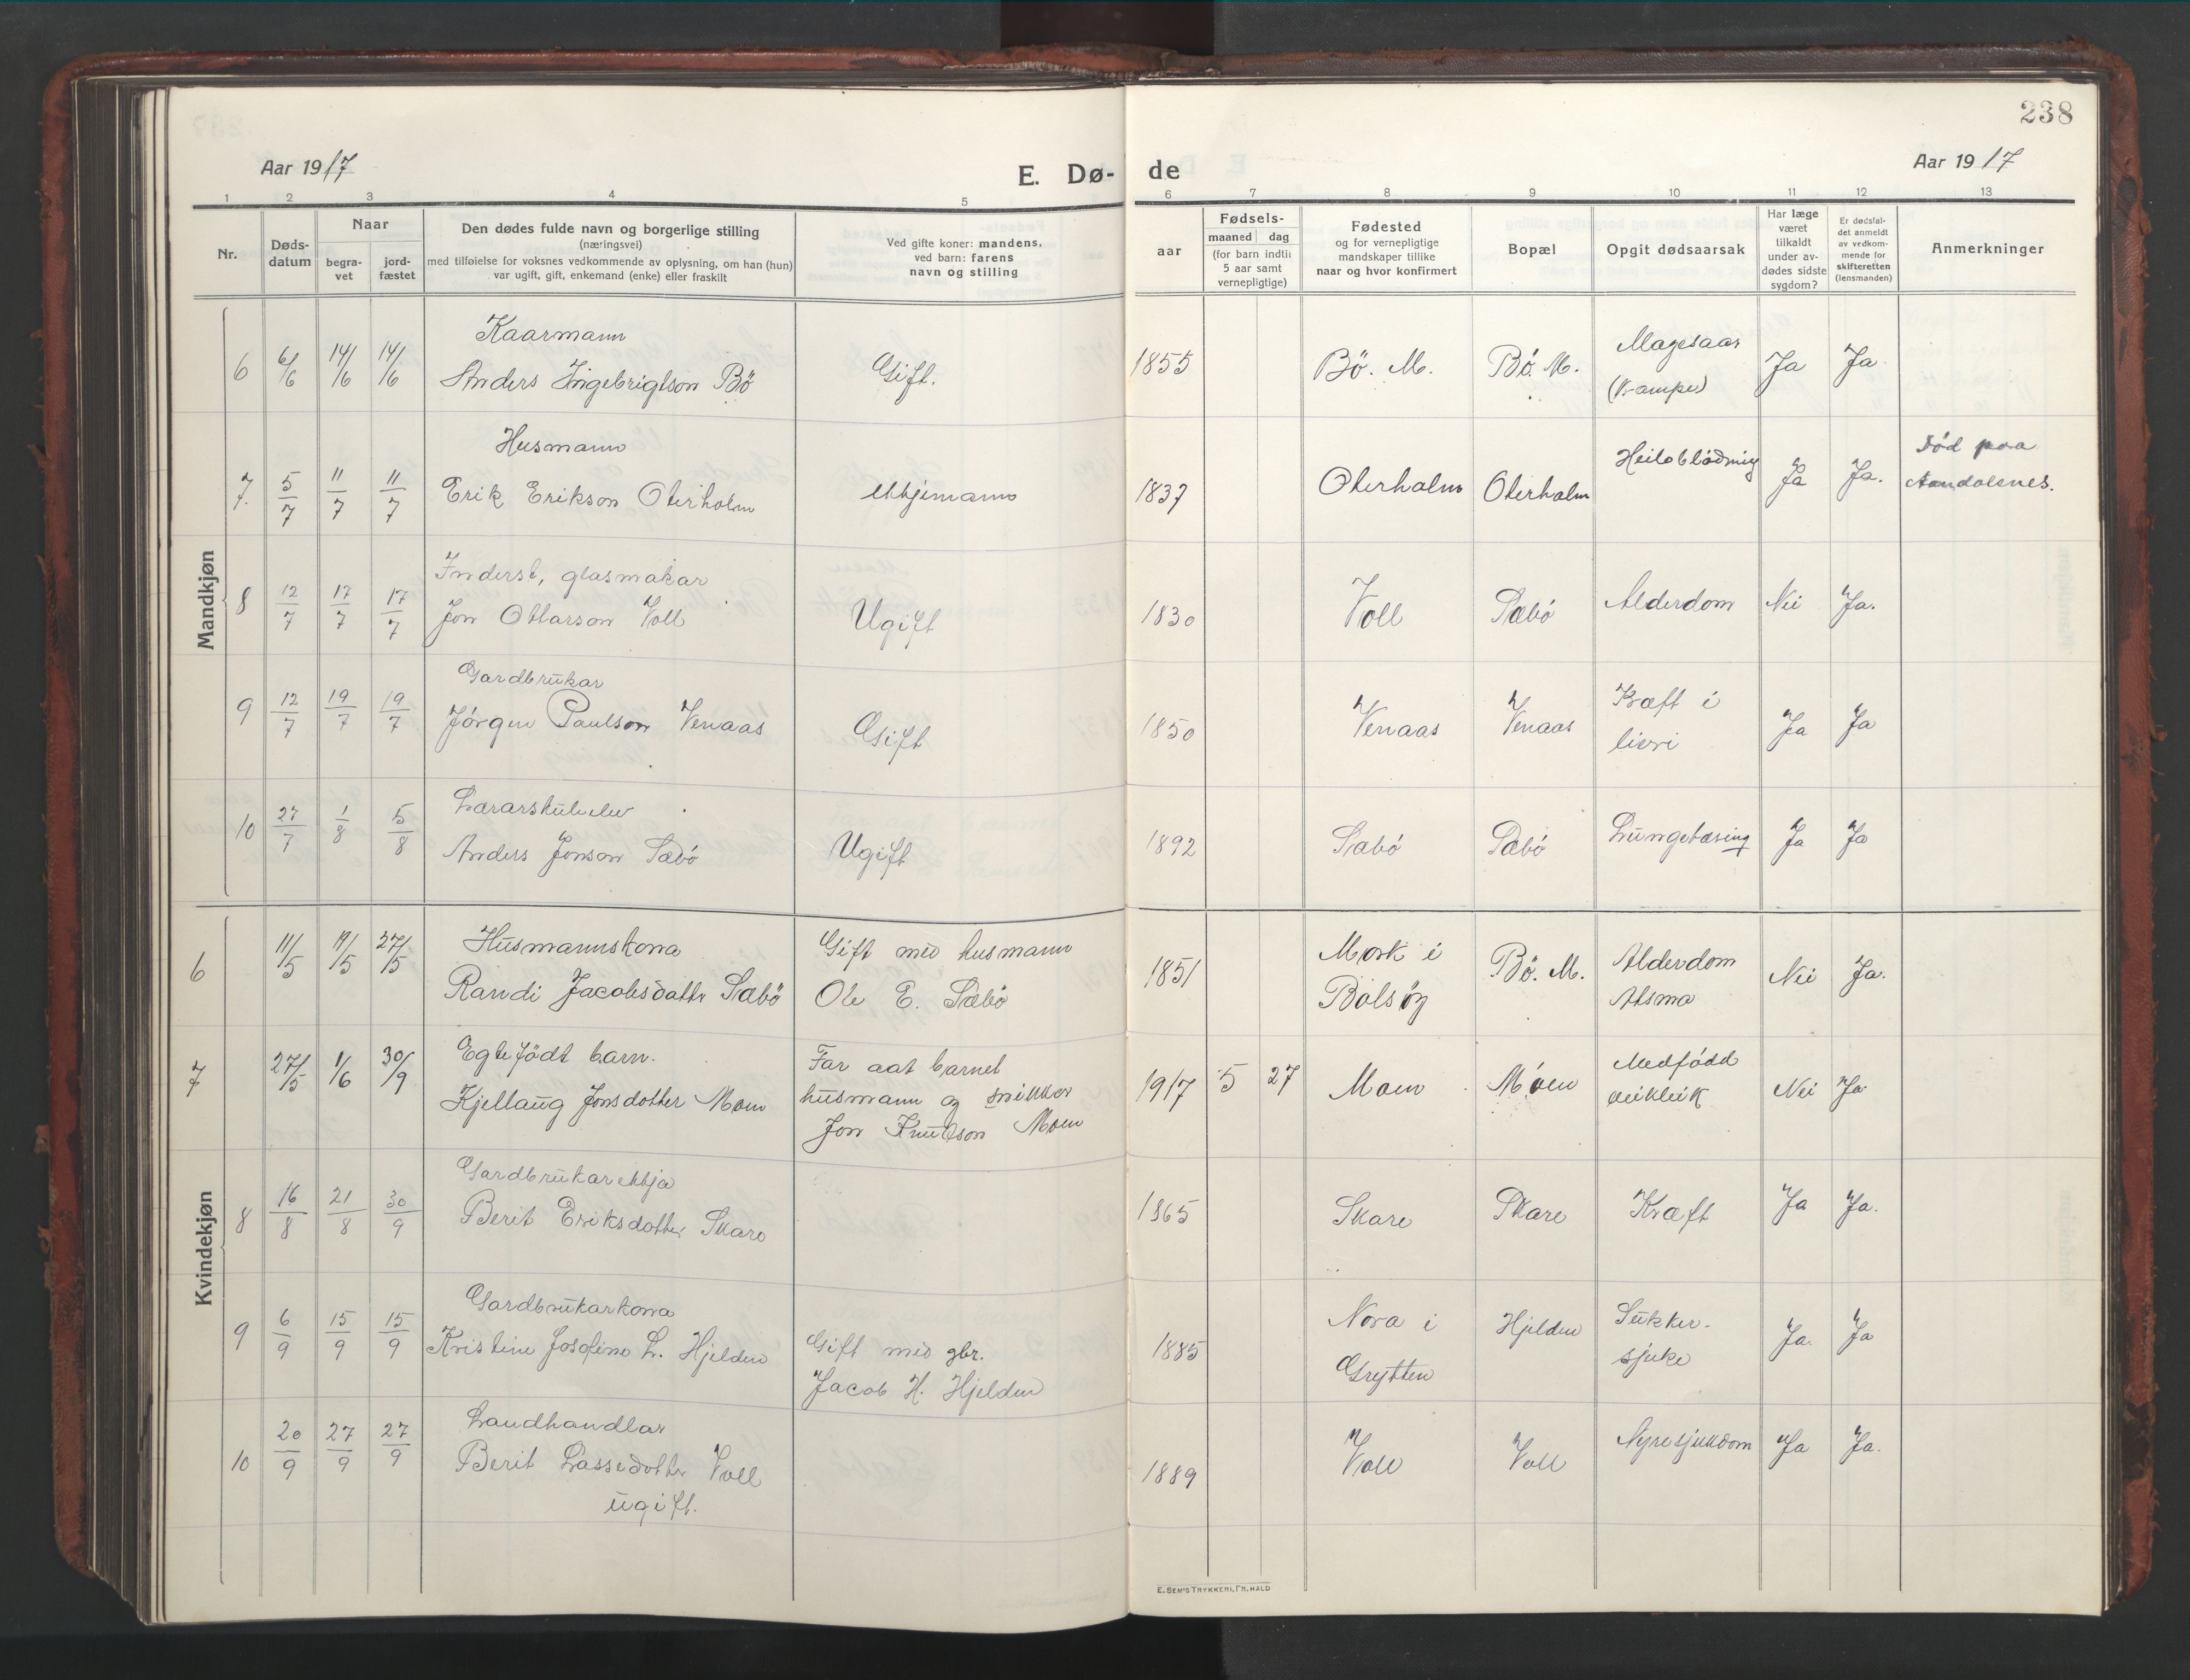 238
Aar 1917
E. Dø-
de
Aar 1917
1 2 3 4 5 6 7 8 9 10 11 12 13
Nr.
Døds-
datum
Naar
begra-
vet
jord-
fæstet
Den dødes fulde navn og borgerlige stilling
(næringsvei)
med tilføielse for voksnes vedkommende av oplysning, om han (hun)
var ugift, gift, enkemand (enke) eller fraskilt
Ved gifte koner: mandens,
ved barn: farens
navn og stilling
aar
Fødsels-
maaned dag
(for barn indtil
5 aar samt
vernepligtige)
Fødested
og for vernepligtige
mandskaper tillike
naar og hvor konfirmert
Bopæl
Opgit dødsaarsak
Har læge
været
tilkaldt
under av-
dødes sidste
sygdom?
Er dødsfal-
det anmeldt
av vedkom-
mende for
skifteretten
(lensmanden)
Anmerkninger
Mandkjøn
Kaarmann
6 6/6 14/6 14/6 Anders Ingebrigtson Bö Gift. 1855 Bö. M. Bö. M. Magesaar Ja Ja
(Krampe)
Husmann
7. 5/7 11/7 11/7 Erik Erikson Oterholm ekkjemann 1837 Oterholm Oterholm Ja Ja. Död paa
Aandalsnes.
Inderst, glasmakar
8 12/7 17/7 17/7 Jon Ottarson Voll Ugift 1830 Voll Sæbö Alderdom Nei Ja.
Gardbrukar
9 12/7 19/7 19/7 Jörgen Paulson Venaas Gift 1850 Venaas Venaas Kræft i Ja Ja
Lærarskuleelev
10 27/7 1/8 5/8 Anders Jonson Sæbö Ugift 1892 Sæbö Sæbö Lungetæring Ja Ja
Kvindekjøn
Husmannskona
6 11/5 19/5 27/5 Randi Jacobsdatter Sæbö Gift med husmann
Ole E. Sæbö 1851 Mork i
Bolsöy Bö. M. Alderdom
Atsma Nei Ja.
Egtefödt barn.
7 27/5 1/6 30/9 Kjellaug Jonsdotter Moen Far aat barnet
husmann og snikkar
Jon Knutson Moen 1917 5 27 Moen Moen Medfödd
veikleik Nei Ja.
Gardbrukarekkja
8 16/8 21/8 30/9 Berit Eriksdotter Skare 1865 Skare Skare Kræft Ja Ja.
Gardbrukarkona
9 6/9 15/9 15/9 Kristine Josefine L. Hjelden Gift med gbr.
Jacob H. Hjelden 1885 Nora i
Grytten Hjelden Sukker-
sjuke Ja. Ja
Landhandlar
10 20/9 27/9 27/9 Berit Lassedotter Voll 1889 Voll Voll Nyresjukdom Ja Ja.
ugift.
E. SEM'S TRYKKERI, FR.HALD